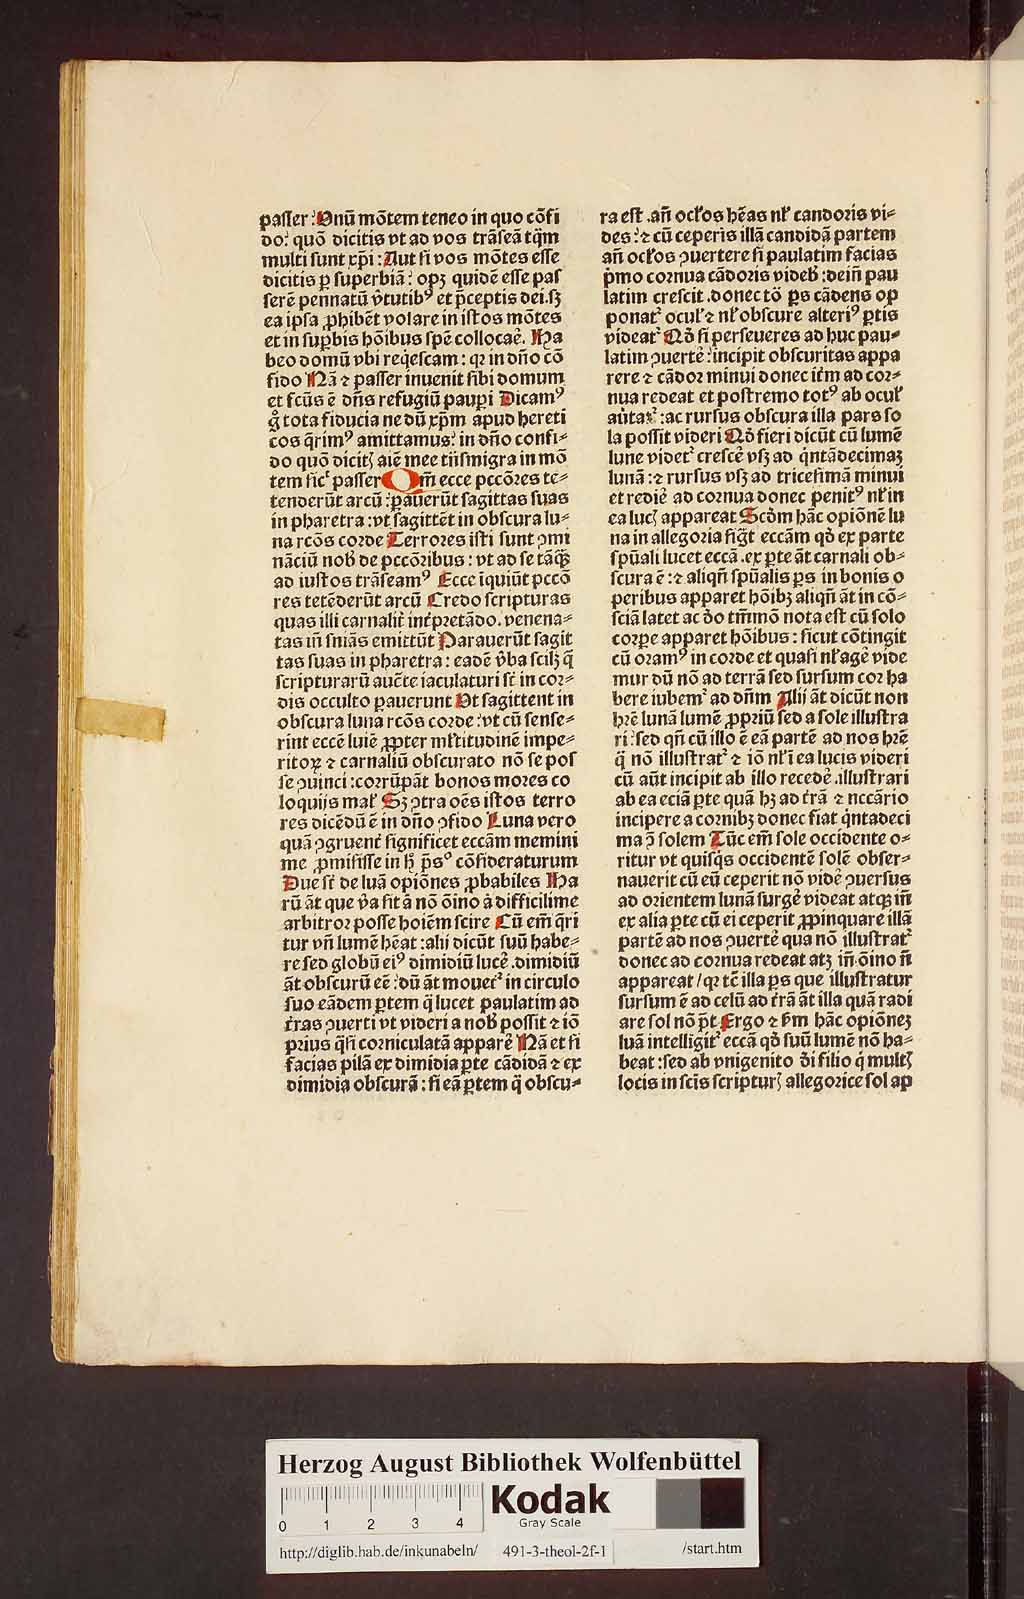 passer: Unū mōtem teneo in quo cōfi
do: quō dicitis vt ad vos trāseā tq̄m
multi sunt xp̄i: Aut si vos mōtes esse
dicitis p̱ superbiā: opꝫ quidē esse pas
serē pennatū v̄tutibꝰ et p̄ceptis dei. sꝫ
ea ipsa ꝓhibēt volare in istos mōtes
et in suꝑbis hōibus spē collocar̄e. Ha
beo domū vbi req̇escam: qꝛ in dn̄o cō
fido Nā ⁊ passer inuenit sibi domum
et fcūs ē dn̄s refugiū pauꝑi Dicamꝰ
g̊ tota fiducia ne dū xp̄m apud hereti
cos q̄rimꝰ amittamus: in dn̄o confi⸗
do quō dicitꝭ aiē mee trāsmigra in mō
tem sic̄ passer Qm̄ ecce pccōres te⸗
tenderūt arcū: ꝑauerūt sagittas suas
in pharetra: vt sagittēt in obscura lu⸗
na rcōs corde Terrores isti sunt ꝯmi
nāciū nob̄ de pccōribus: vt ad se tāꝙ̄
ad iustos trāseamꝰ Ecce iquiūt pccō
res tetēderūt arcū Credo scripturas
quas illi carnalit̄ int̄pretādo. venena⸗
tas in̄ sn̄ias emittūt Parauerūt sagit
tas suas in pharetra: eadē v̄ba scilꝫ q̄
scripturarū auc̄te iaculaturi st̄ in cor⸗
dis occulto ꝑauerunt Ut sagittent in
obscura luna rcōs corde: vt cū sense⸗
rint eccē luiē ꝓpter ml̄titudinē impe⸗
ritoꝝ ⁊ carnaliū obscurato nō se pos
se ꝯuinci: corrūpāt bonos mores co
loquijs mal̄ Sꝫ ꝯtra oēs istos terro
res dicēdū ē in dn̄o ꝯfido Luna vero
quā ꝯgruent̄ significet eccām memini
me ꝓmisisse in h̄ p̄sꝰ cōsideraturum
Due st̄ de luā opiōnes ꝓbabiles Ha
rū āt que v̄a sit ā nō ōino ā difficilime
arbitror posse hoiēm scire Cū em̄ q̄ri
tur vn̄ lumē hēat: alij dicūt suū habe⸗
re sed globū eiꝰ dimidiū lucē. dimidiū
āt obscurū eē: dū āt mouet᷑ in circulo
suo eādem ꝑtem q̄ lucet paulatim ad
t̄ras ꝯuerti vt videri a nob̄ possit ⁊ iō
prius qᷓsi corniculatā apparē Nā et si
facias pilā ex dimidia ꝑte cādidā ⁊ ex
dimidia obscurā: si eā ꝑtem q̄ obscu⸗
ra est. an̄ ocl̄os hēas nl̄ candoris vi⸗
des: ⁊ cū ceperis illā candidā partem
an̄ ocl̄os ꝯuertere si paulatim facias
p̄mo cornua cādoris videb̄: dein̄ pau
latim crescit. donec tō ꝑs cādens op
ponat᷑ ocul̄ ⁊ nl̄ obscure alteriꝰ ꝑtis
videat᷑ Qd̄ si perseueres ad huc pau⸗
latim ꝯuertē: incipit obscuritas appa
rere ⁊ cādor minui donec it̄m ad cor⸗
nua redeat et postremo totꝰ ab ocul̄
au̇tat᷑: ac rursus obscura illa pars so
la possit videri Qd̄ fieri dicūt cū lumē
lune videt᷑ crescē vsꝫ ad q̇ntādecimaꝫ
lunā: ⁊ rursus vsꝫ ad tricesimā minui
et rediē ad cornua donec penitꝰ nl̄ in
ea lucꝭ appareat Scd̄m hāc opiōnē lu
na in allegoria fig̅t eccām qd̄ ex parte
spūali lucet eccā. ex ꝑte āt carnali ob⸗
scura ē: ⁊ aliqn̄ spūalis ꝑs in bonis o
peribus apparet hōibꝫ aliqn̄ āt in cō⸗
sciā latet ac d̄o tm̄mō nota est cū solo
corꝑe apparet hōibus: sicut cōtingit
cū oramꝰ in corde et quasi nl̄ agē vide
mur dū nō ad terrā sed sursum cor ha
bere iubem᷑ ad dn̄m Alij āt dicūt non
hr̄e lunā lumē ꝓpriū sed a sole illustra
ri: sed qn̄ cū illo ē eā partē ad nos hr̄ē
q̄ nō illustrat᷑ ⁊ iō nl̄ ī ea lucis videri
cū aūt incipit ab illo recedē. illustrari
ab ea eciā ꝑte quā hꝫ ad t̄rā ⁊ nccārio
incipere a cornibꝫ donec fiat q̇ntadeci
ma ꝯ̄ solem Tūc em̄ sole occidente o⸗
ritur vt quisqs occidentē solē obser⸗
nauerit cū eū ceperit nō vidē ꝯuersus
ad orientem lunā surgē videat atqꝫ in̄
ex alia ꝑte cū ei ceperit ꝓpinquare illā
partē ad nos ꝯuertē qua nō illustrat᷑
donec ad cornua redeat atꝫ in̄ ōino n̄
appareat / qꝛ tc̄ illa ꝑs que illustratur
sursum ē ad celū ad t̄rā āt illa quā radi
are sol nō p̄t Ergo ⁊ ẜm hāc opiōneꝫ
luā intelligit᷑ eccā qd̄ suū lumē nō ha⸗
beat: sed ab vnigenito dī filio q̇ multꝭ
locis in scīs scripturꝭ allegorice sol ap
Herzog August Bibliothek Wolfenbüttel
0 1 2 3 4
Kodak
Gray Scale
http://diglib.hab.de/inkunabeln/ 491-3-theol-2f-1 /start.htm